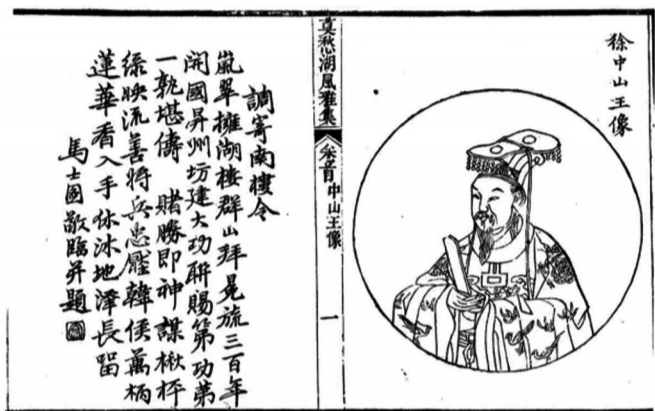 徐中山王像
莫愁湖風雅集
中山王像
一
調寄南樓令
嵐翠擁湖樓群山拜冕旒三百年
開國昇州坊建大功聯賜第功第
一孰堪儔 賭勝即神謀楸枰
綠映流善將兵忠壓韓侯萬柄
蓮華香入手休沐地澤長留
馬士圖敬臨并題